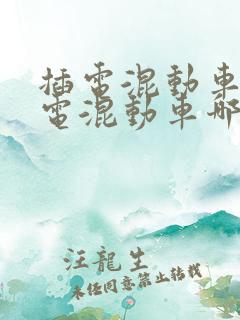 插電混動車
電混動車哪
汪龍生
未任同意禁止转载